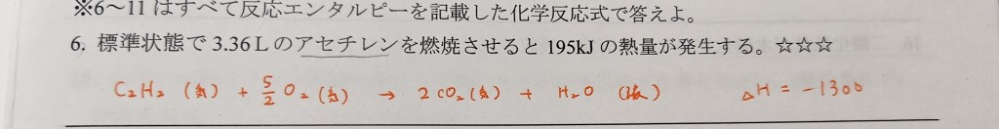 ※6～11 はすべて反応エンタルピーを記載した化学反応式で答えよ。
6. 標準状態で 3.36 L のアセチレンを燃焼させると 195kJ の熱量が発生する。☆☆☆
C₂H₂ (気) + 5/2 O₂ (気) → 2CO₂ (気) + H₂O (液) △H = -1300